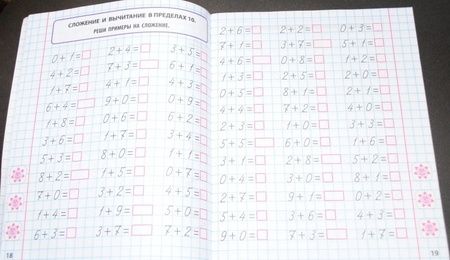 СЛОЖЕНИЕ И ВЫЧИТАНИЕ В ПРЕДЕЛАХ 10.
РЕШИ ПРИМЕРЫ НА СЛОЖЕНИЕ.
0+1= 2+4= 3+5=
4+2= 7+3= 6+1=
1+7= 4+1= 4+3=
6+4= 9+0= 0+9=
1+8= 0+6= 6+2=
3+6= 1+7= 3+4=
5+3= 8+0= 1+1=
8+2= 1+5= 0+7=
7+0= 3+2= 4+5=
1+4= 1+9= 5+0=
6+3= 3+7= 7+2=
18
2+6= 2+2= 0+3=
7+1= 3+7= 5+1=
4+6= 0+8= 1+2=
1+3= 2+5= 2+0=
0+5= 8+1= 2+1=
4+4= 7+2= 4+0=
2+3= 1+0= 3+3=
5+5= 6+0= 1+6=
3+1= 2+8= 5+2=
2+4= 3+0= 8+1=
2+7= 9+1= 0+2=
5+4= 3+6= 4+3=
9+0= 7+3= 1+7=
19